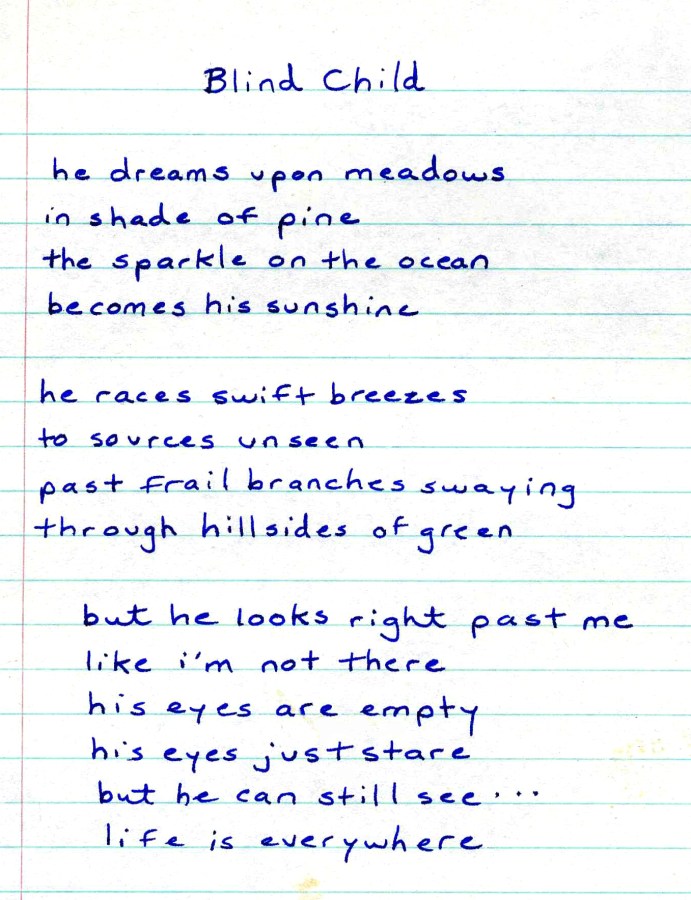 Blind Child
he dreams upon meadows
in shade of pine
the sparkle on the ocean
becomes his sunshine
he races swift breezes
to sources unseen
past frail branches swaying
through hillsides of green
but he looks right past me
like i'm not there
his eyes are empty
his eyes just stare
but he can still see...
life is everywhere